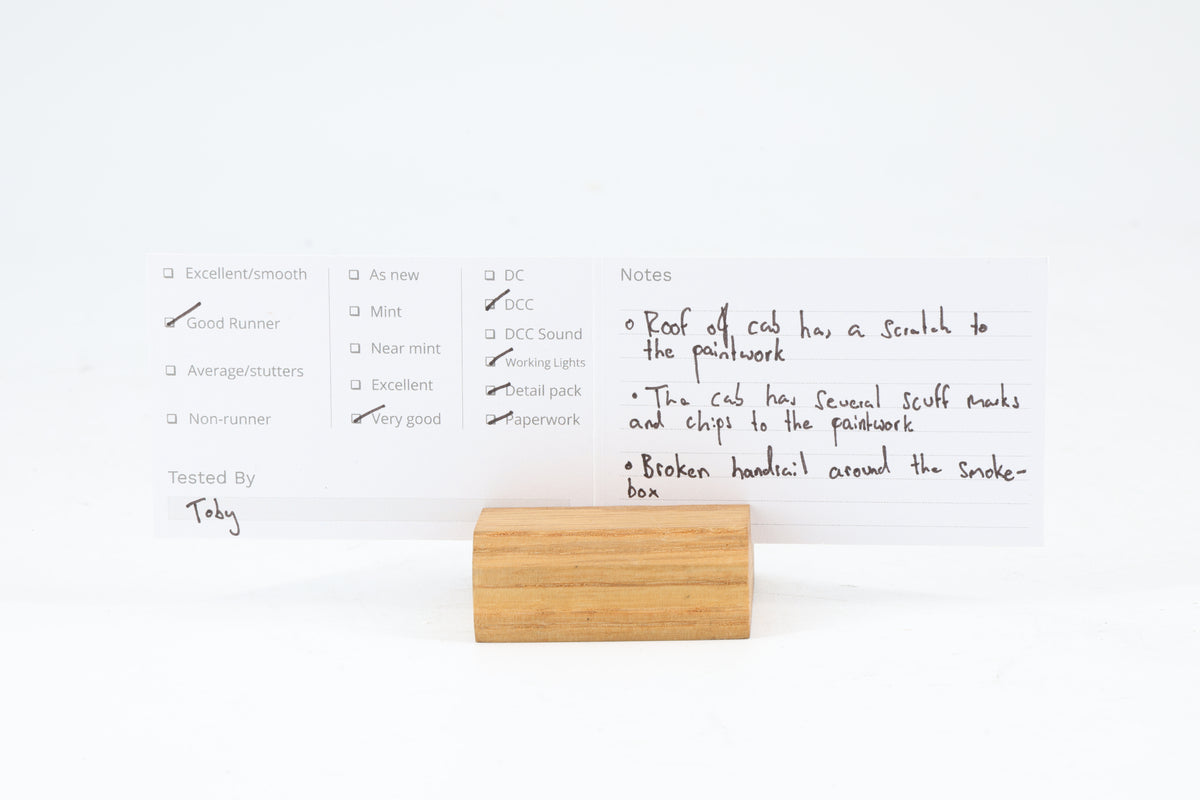 Excellent/smooth
Good Runner
Average/stutters
Non-runner
As new
Mint
Near mint
Excellent
Very good
DC
DCC
DCC Sound
Working Lights
Detail pack
Paperwork
Tested By
Toby
Notes
Roof of cab has a scratch to
the paintwork
• The cab has several scuff marks
and chips to the paintwork
• Broken handrail around the smoke-
box